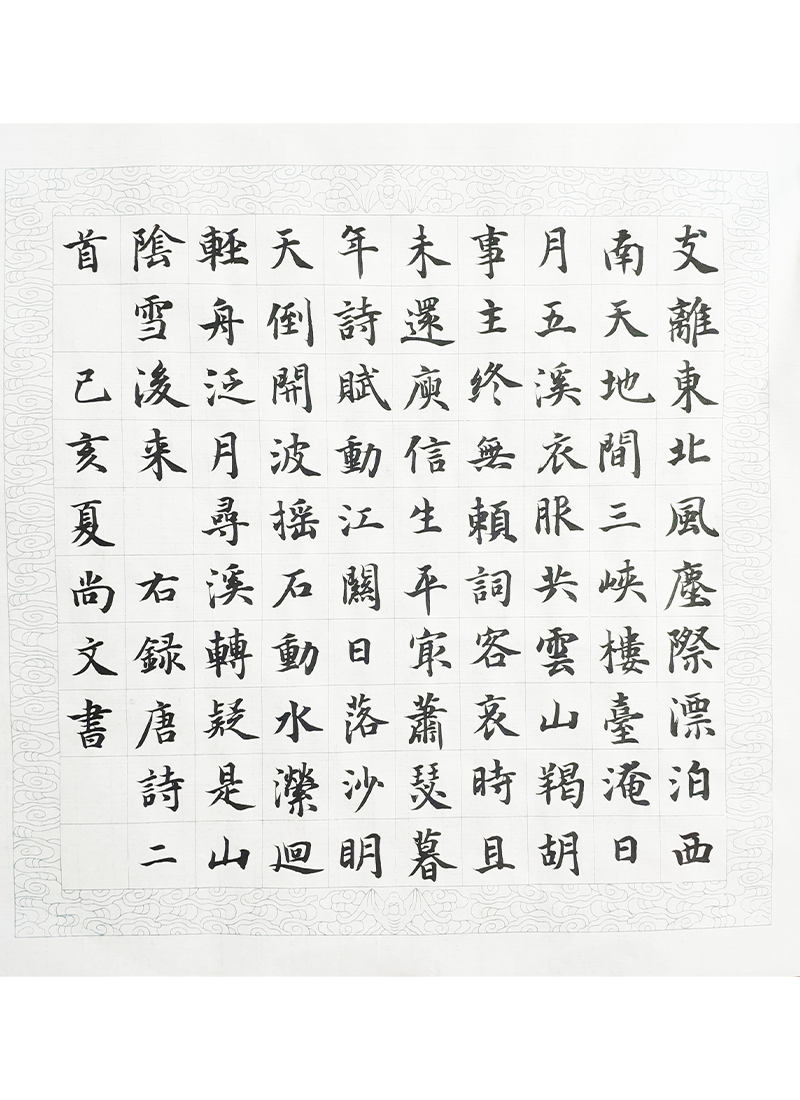 支離東北風塵際漂泊西
南天地間三峽樓臺淹日
月五溪衣服共雲山羯胡
事主終無頼詞客哀時且
未還庾信生平冣蕭瑟暮
年詩賦動江關日落沙明
天倒開波摇石動水瀠迴
輕舟泛月尋溪轉疑是山
陰雪後来 右録唐詩二
首 己亥夏尚文書